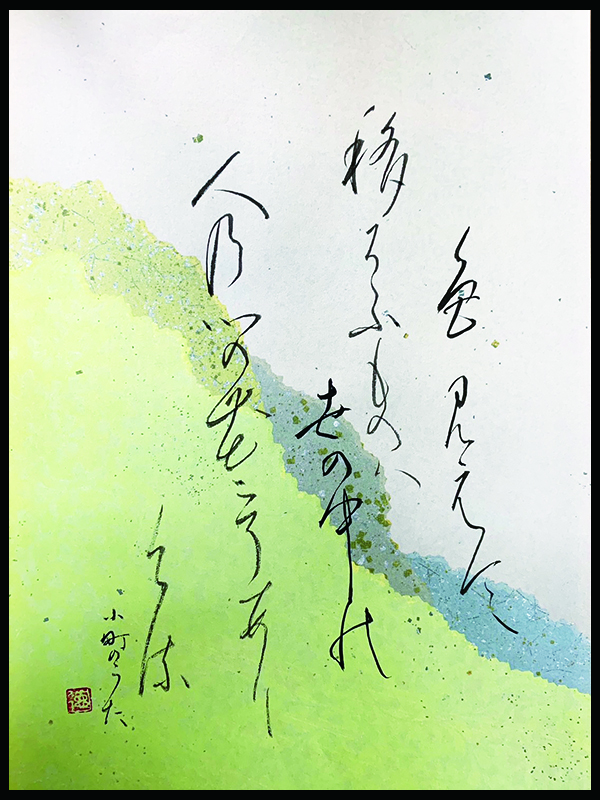 色見えて
移ろふものハ
世の中の
人乃心の花にそあり
ける
小町のうた